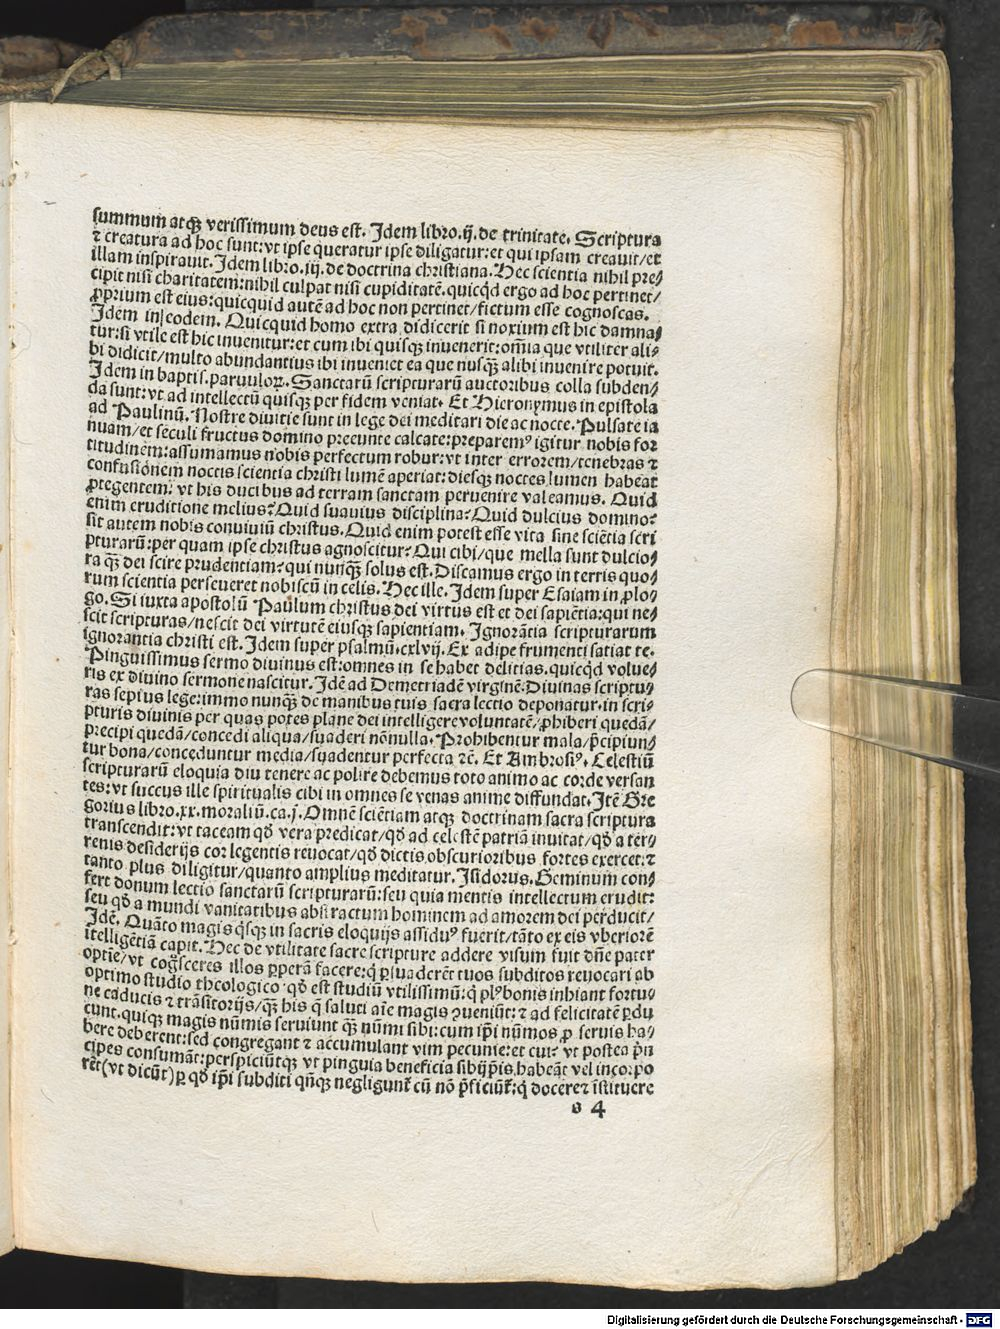 summum atqꝫ verissimum deus est. Idem libro.ij. de trinitate. Scriptura
⁊ creatura ad hoc sunt: vt ipse queratur ipse diligatur: et qui ipsam creauit/et
illam inspirauit. Idem libro.iij. de doctrina christiana. Hec scientia nihil pre⸗
cipit nisi charitatem: nihil culpat nisi cupiditatē. quicqd̄ ergo ad hoc pertinet/
ꝓprium est eius: quicquid autē ad hoc non pertinet/fictum esse cognoscas.
Idem in eodem. Quicquid homo extra didicerit si noxium est hic damna⸗
tur: si vtile est hic inuenitur: et cum ibi quisqꝫ inuenerit: om̄ia que vtiliter ali⸗
bi didicit/multo abundantius ibi inueniet ea que nusqꝫ̄ alibi inuenire potuit.
Idem in baptis. paruuloꝝ. Sanctarū scripturarū auctoribus colla subden⸗
da sunt: vt ad intellectū quisqꝫ per fidem veniat. Et Hieronymus in epistola
ad Paulinū. Nostre diuitie sunt in lege dei meditari die ac nocte. Pulsate ia
nuam/et seculi fructus domino preeunte calcate: preparemꝰ igitur nobis for
titudinem: assumamus nobis perfectum robur: vt inter errorem/tenebras ⁊
confusionem noctis scientia christi lumē aperiat: diesqꝫ noctes lumen habeat
ꝓtegentem: vt his ducibus ad terram sanctam peruenire valeamus. Quid
enim eruditione melius? Quid suauius disciplina? Quid dulcius domino?
sit autem nobis conuiuiū christus. Quid enim potest esse vita sine sciētia scri
pturarū: per quam ipse christus agnoscitur? Qui cibi/que mella sunt dulcio⸗
ra qꝫ̄ dei scire prudentiam? qui nunqꝫ̄ solus est. Discamus ergo in terris quo⸗
rum scientia perseueret nobiscū in celis. Hec ille. Idem super Esaiam in ꝓlo⸗
go. Si iuxta apostolū Paulum christus dei virtus est et dei sapiētia: qui ne⸗
scit scripturas/nescit dei virtutē eiusqꝫ sapientiam. Ignorātia scripturarum
ignorantia christi est. Idem super psalmū.cxlvij. Ex adipe frumenti satiat te.
Pinguissimus sermo diuinus est: omnes in se habet delitias. quicqd̄ volue⸗
ris ex diuino sermone nascitur. Idē ad Demetriadē virginē. Diuinas scriptu⸗
ras sepius lege: immo nunqꝫ̄ de manibus tuis sacra lectio deponatur. in scri⸗
pturis diuinis per quas potes plane dei intelligere voluntatē/ꝓhiberi quedā/
precipi quedā/concedi aliqua/suaderi nōnulla. Prohibentur mala/p̄cipiun⸗
tur bona/conceduntur media/suadentur perfecta ⁊c̄. Et Ambrosiꝰ. Celestiū
scripturarū eloquia diu tenere ac polire debemus toto animo ac corde versan
tes: vt succus ille spiritualis cibi in omnes se venas anime diffundat. Itē Gre
gorius libro.xx. moraliū.ca.j. Omnē sciētiam atqꝫ doctrinam sacra scriptura
transcendit: vt taceam qd̄ vera predicat/qd̄ ad celestē patriā inuitat/qd̄ a ter⸗
renis desiderijs cor legentis reuocat/qd̄ dictis obscurioribus fortes exercet: ⁊
tanto plus diligitur/quanto amplius meditatur. Isidorus. Geminum con⸗
fert donum lectio sanctarū scripturarū: seu quia mentis intellectum erudit:
seu qd̄ a mundi vanitatibus abstractum hominem ad amorem dei perducit/
Idē. Quāto magis q̄sqꝫ in sacris eloquijs assiduꝰ fuerit/tāto ex eis vberiorē
ītelligētiā capit. Hec de vtilitate sacre scripture addere visum fuit dn̄e pater
optie/vt coḡsceres illos ꝑperā facere: q̄ ꝑsuaderēt tuos subditos reuocari ab
optimo studio theologico qd̄ est studiū vtilissimū: q̄ plꝰ bonis inhiant fortu⸗
ne caducis ⁊ trāsitorijs/qꝫ̄ his q̄ saluti aīe magis ꝯueniūt: ⁊ ad felicitatē ꝑdu
cunt. quiqꝫ magis nūmis seruiunt qꝫ̄ nūmi sibi: cum ip̄i nūmos ꝓ seruis ha⸗
bere deberent: sed congregant ⁊ accumulant vim pecunie: et cui? vt postea p̄n
cipes consumāt: perspiciūtqꝫ vt pinguia beneficia sibijp̄is habeāt vel incorpo
rēt(vt dicūt)ꝑ qd̄ ip̄i subditi qn̄qꝫ negligunt̄ cū nō p̄ficiūt̄: q̄ docere ⁊ īstituere
v 4
Digitalisierung gefördert durch die Deutsche Forschungsgemeinschaft - DFG